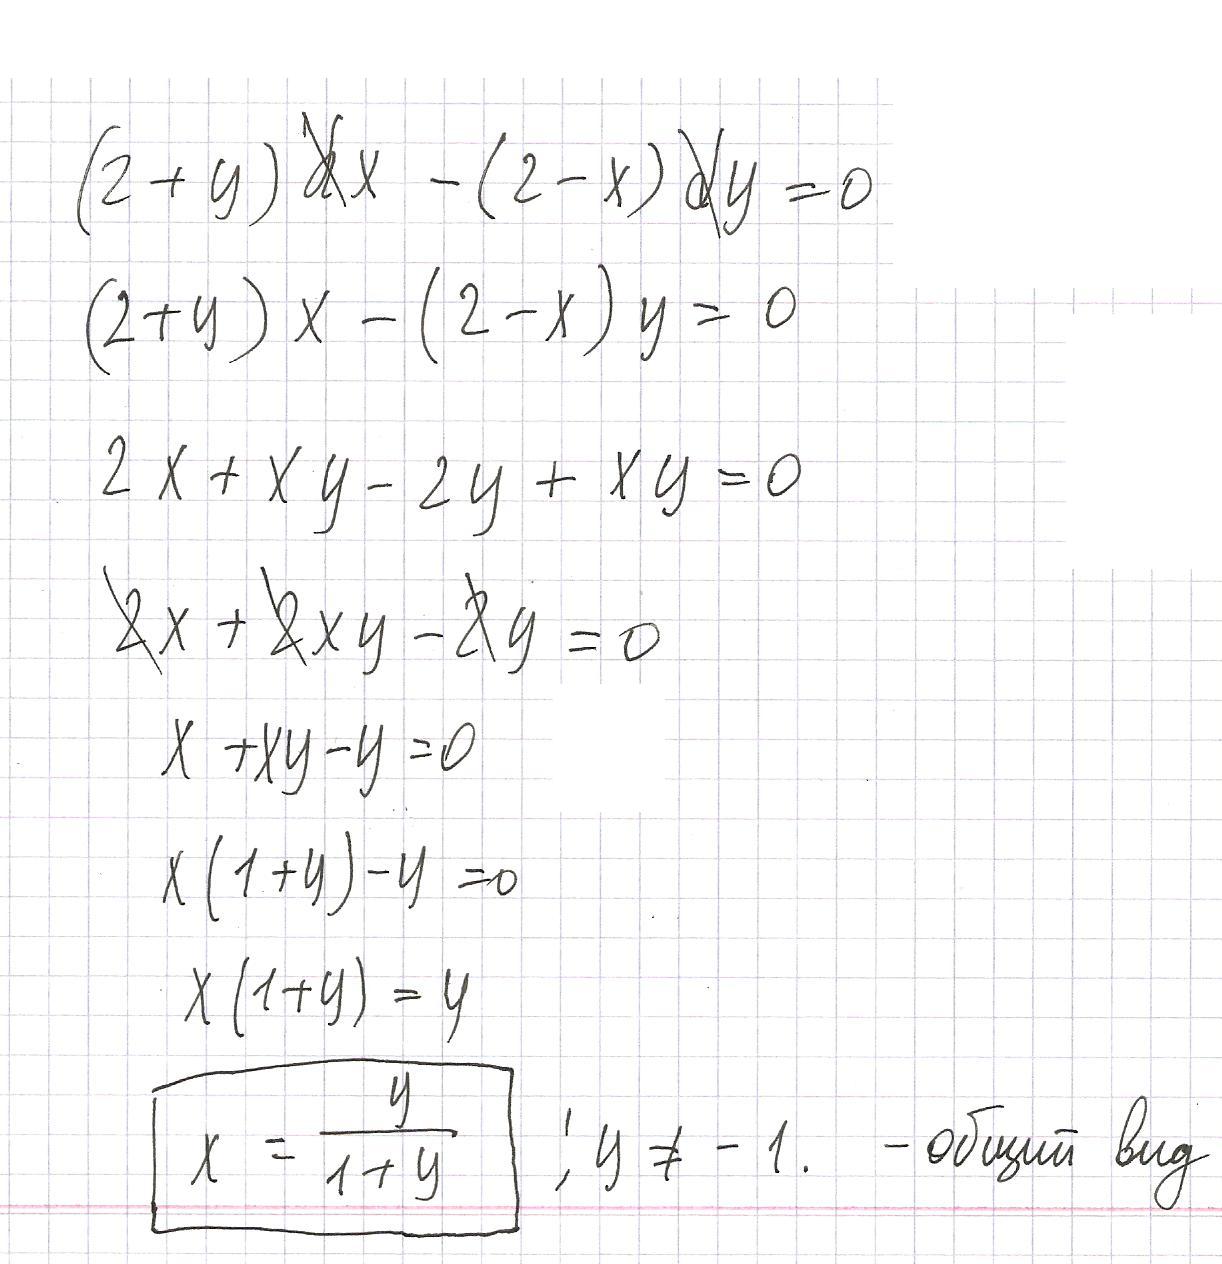 (2+y) dx - (2-x) dy = 0
(2+y) x - (2-x) y = 0
2x + xy - 2y + xy = 0
2x + 2xy - 2y = 0
x + xy - y = 0
x(1+y) - y = 0
x(1+y) = y
x = y/(1+y) ; y ≠ -1. - общий вид